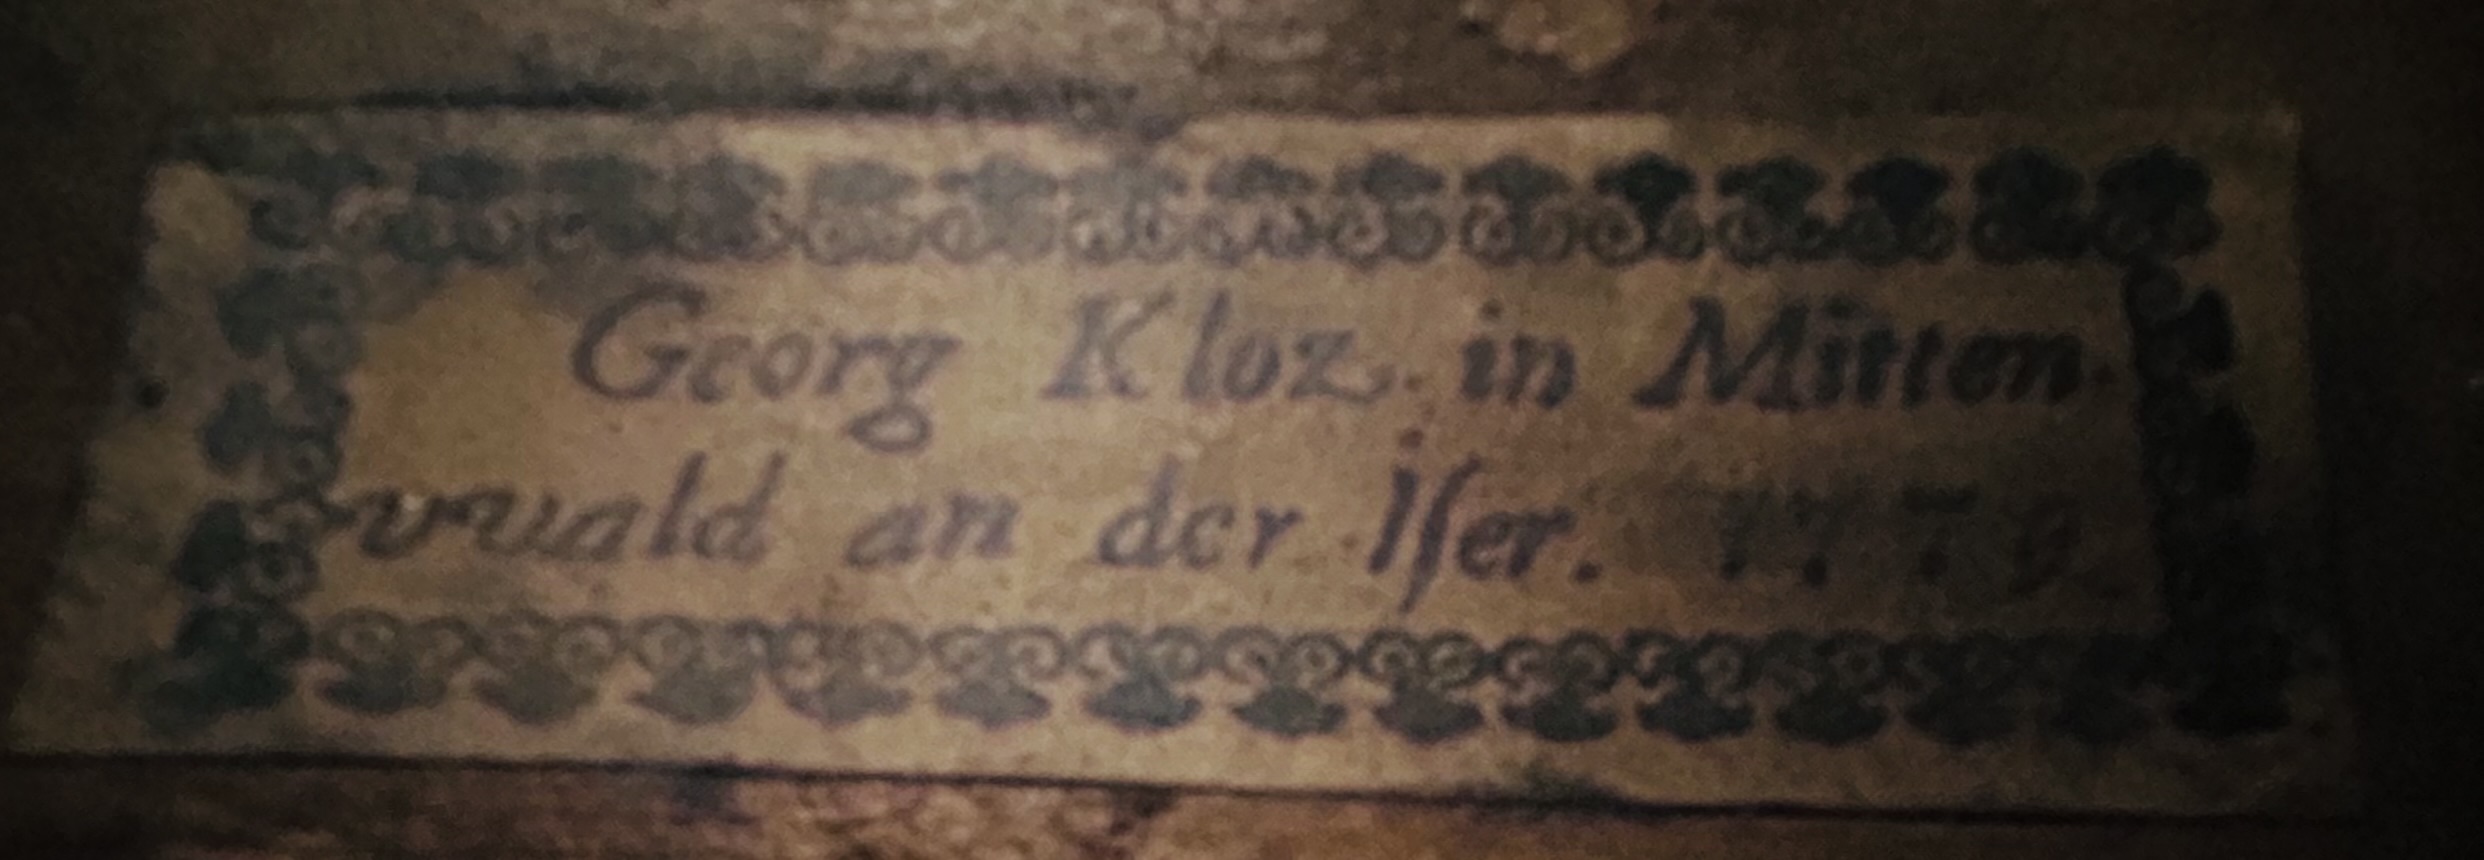 Georg Kloz in Mitten-
vvald an der Iſer. 1779